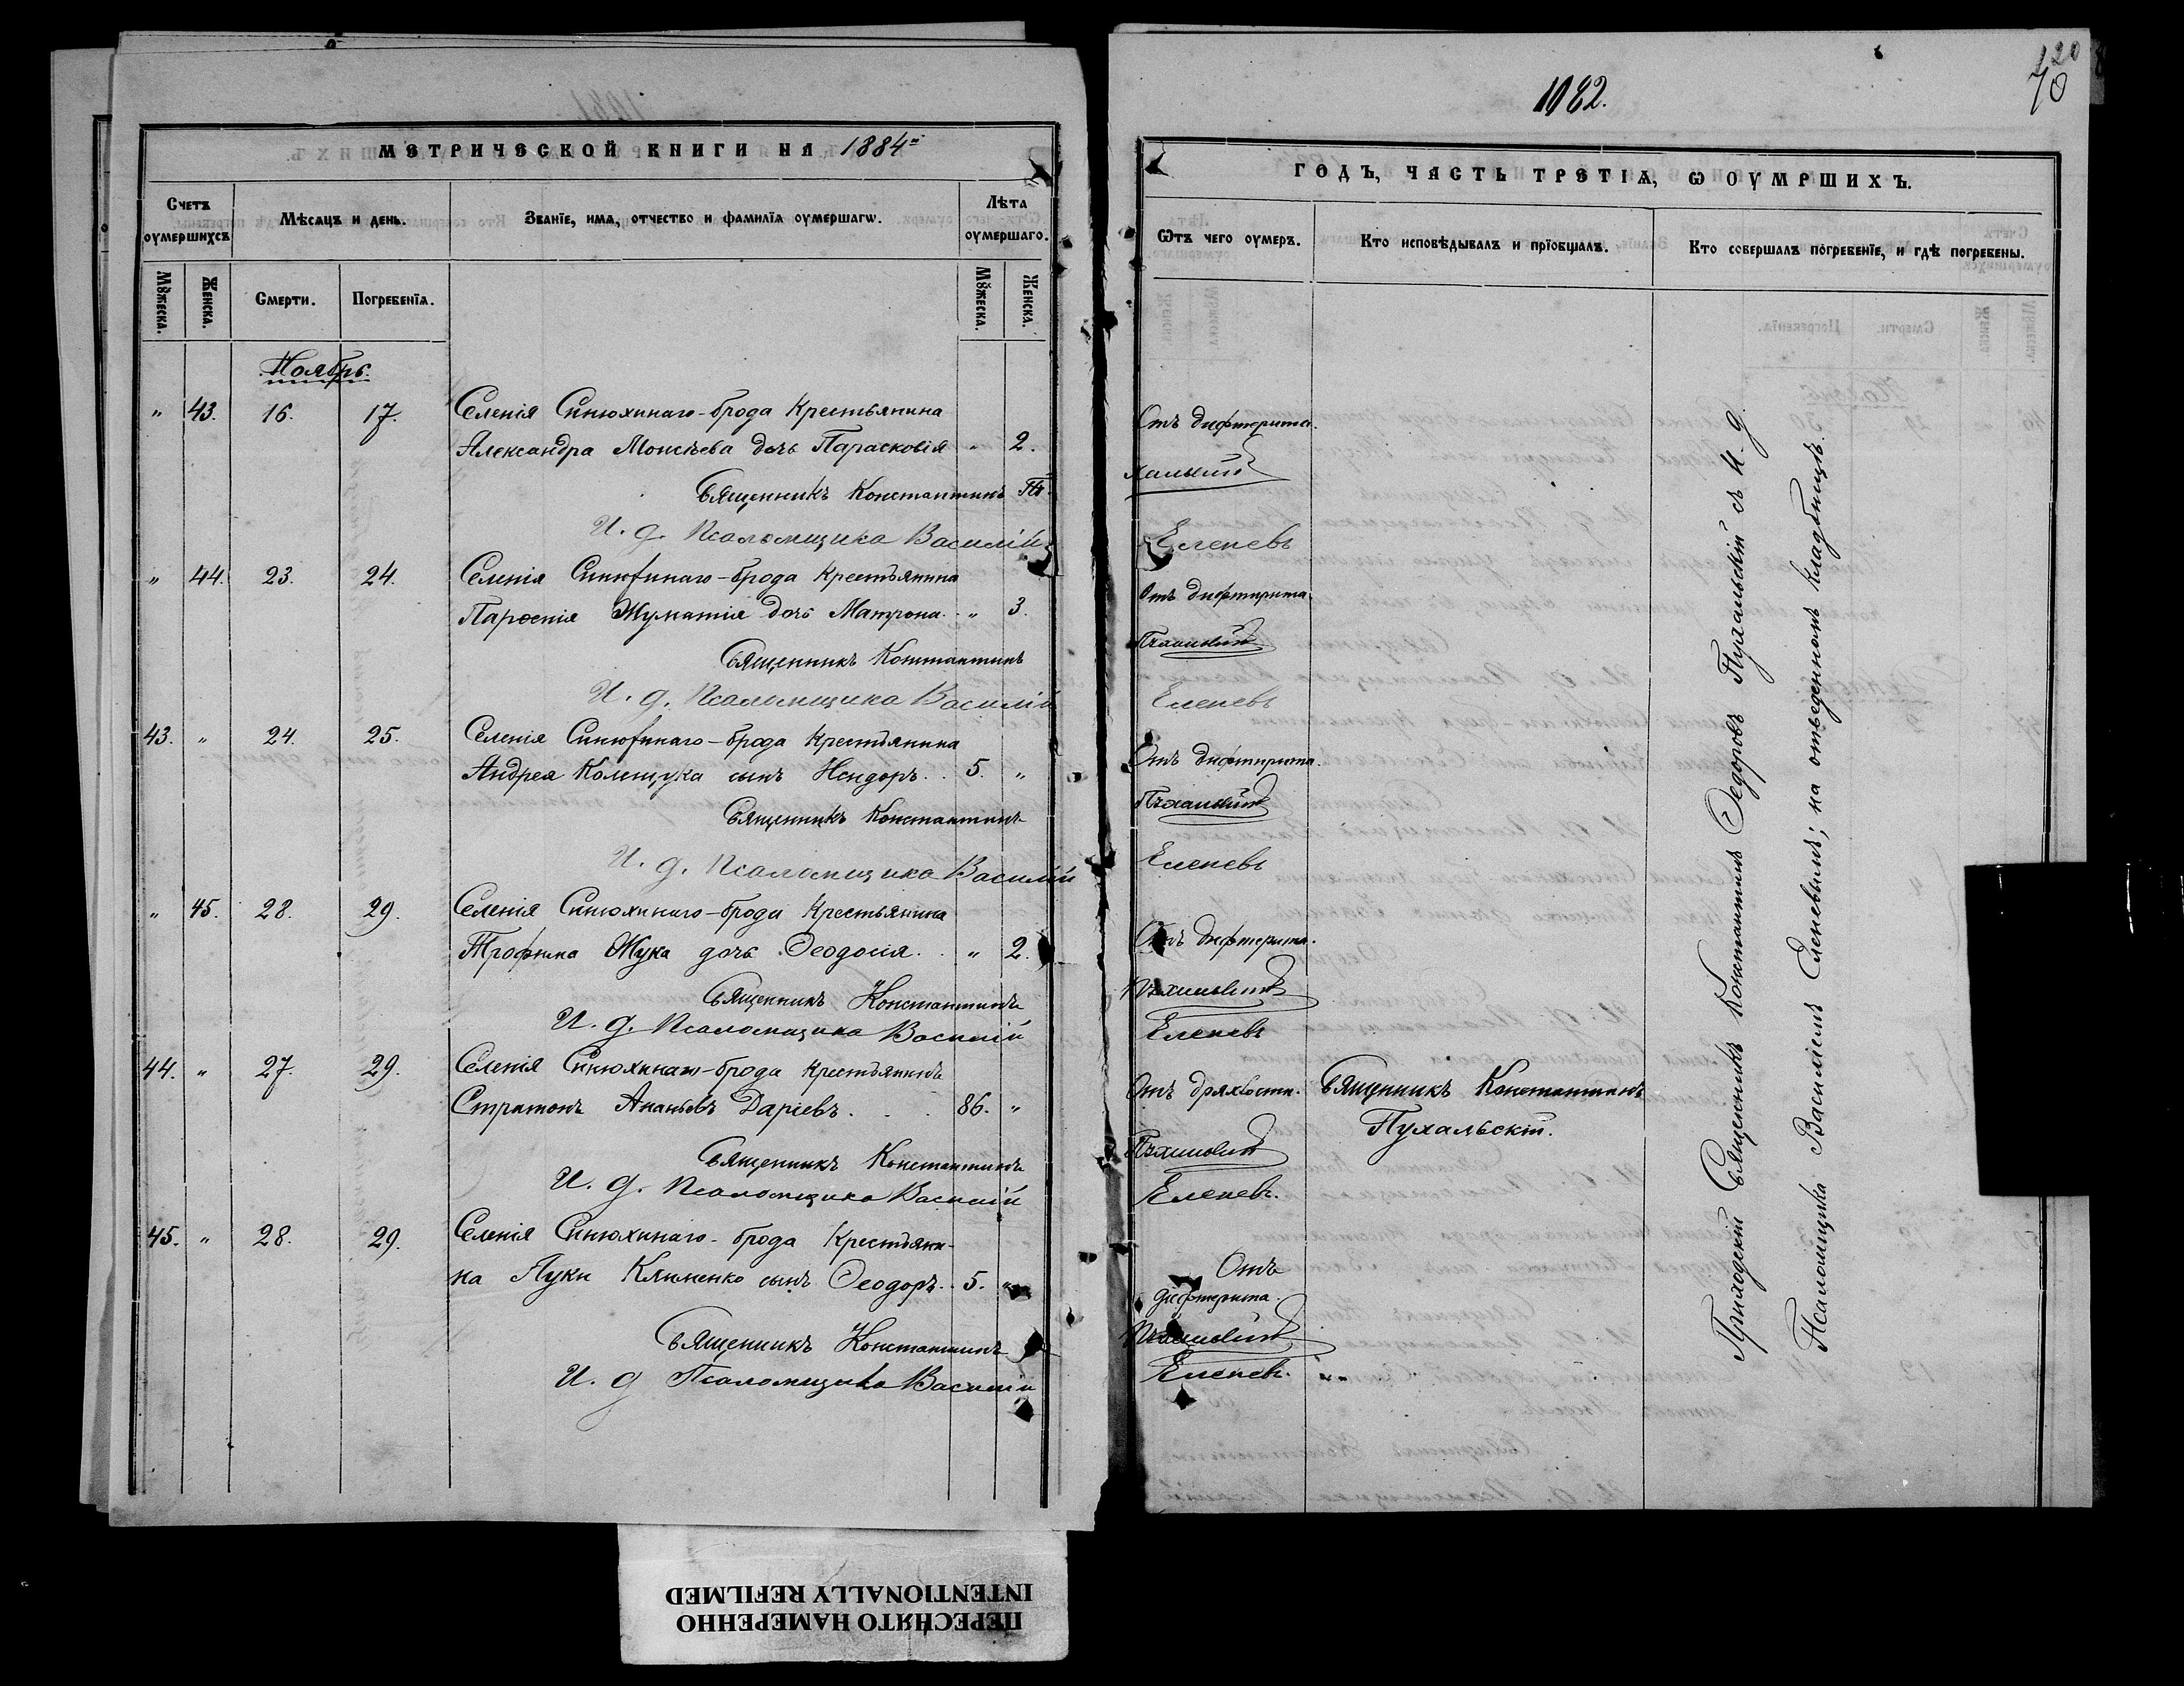 1082.
120
70
МЕТРИЧЕСКОЙ КНИГИ НА 1884й
ГОДЪ, ЧАСТЬ ТРЕТІѦ, Ѡ ОУМРШИХЪ.
Счетъ оумершихъ
Мѣсѧцъ и день.
Званїе, имѧ, отчество и фамилїѧ оумершагѡ.
Лѣта оумершаго.
Ѿтъ чего оумеръ.
Кто исповѣдывалъ и прїобщалъ.
Кто совершалъ погребенїе, и гдѣ погребены.
Мꙋжеска.
Женска.
Смерти.
Погребенїѧ.
Мꙋжеска.
Женска.
Ноябрь.
" 43. 16. 17. Селенія Синюхинаго-брода Крестьянина
Александра Моисѣева дочь Парасковія " 2. Отъ дифтерита.
Священникъ Константинъ Пухальскій
И. д. Псаломщика Василій Еленевъ
" 44. 23. 24. Селенія Синюхинаго-брода Крестьянина
Парѳенія дочь Матрона. " 3. Отъ дифтерита.
Священникъ Константинъ Пухальскій
И. д. Псаломщика Василій Еленевъ
43. " 24. 25. Селенія Синюхинаго-брода Крестьянина
Андрея Колещука сынъ Исидоръ. . 5. " Отъ дифтерита.
Священникъ Константинъ Пухальскій
И. д. Псаломщика Василій Еленевъ
" 45. 28. 29. Селенія Синюхинаго-брода Крестьянина
Трофима Жука дочь Ѳеодосія. . " 2. Отъ дифтерита.
Священникъ Константинъ Пухальскій
И. д. Псаломщика Василій Еленевъ
44. " 27. 29. Селенія Синюхинаго-брода Крестьянинъ
Стратонъ Ананьевъ Даріевъ . . . 86. " Отъ дряхлости. Священникъ Константинъ
Пухальскій.
Священникъ Константинъ Пухальскій
И. д. Псаломщика Василій Еленевъ.
45. " 28. 29. Селенія Синюхинаго-брода Крестьяни-
на Луки Клименко сынъ Ѳеодоръ. . 5. " Отъ
дифтерита.
Священникъ Константинъ Пухальскій
И. д Псаломщика Василій Еленевъ.
Приходскій Священникъ Константинъ Ѳедоровъ Пухальскій съ И. д.
Псаломщика Василіемъ Еленевымъ; на отведенномъ кладбищѣ.
ПЕРЕСНЯТО НАМЕРЕННО
INTENTIONALLY REFILMED